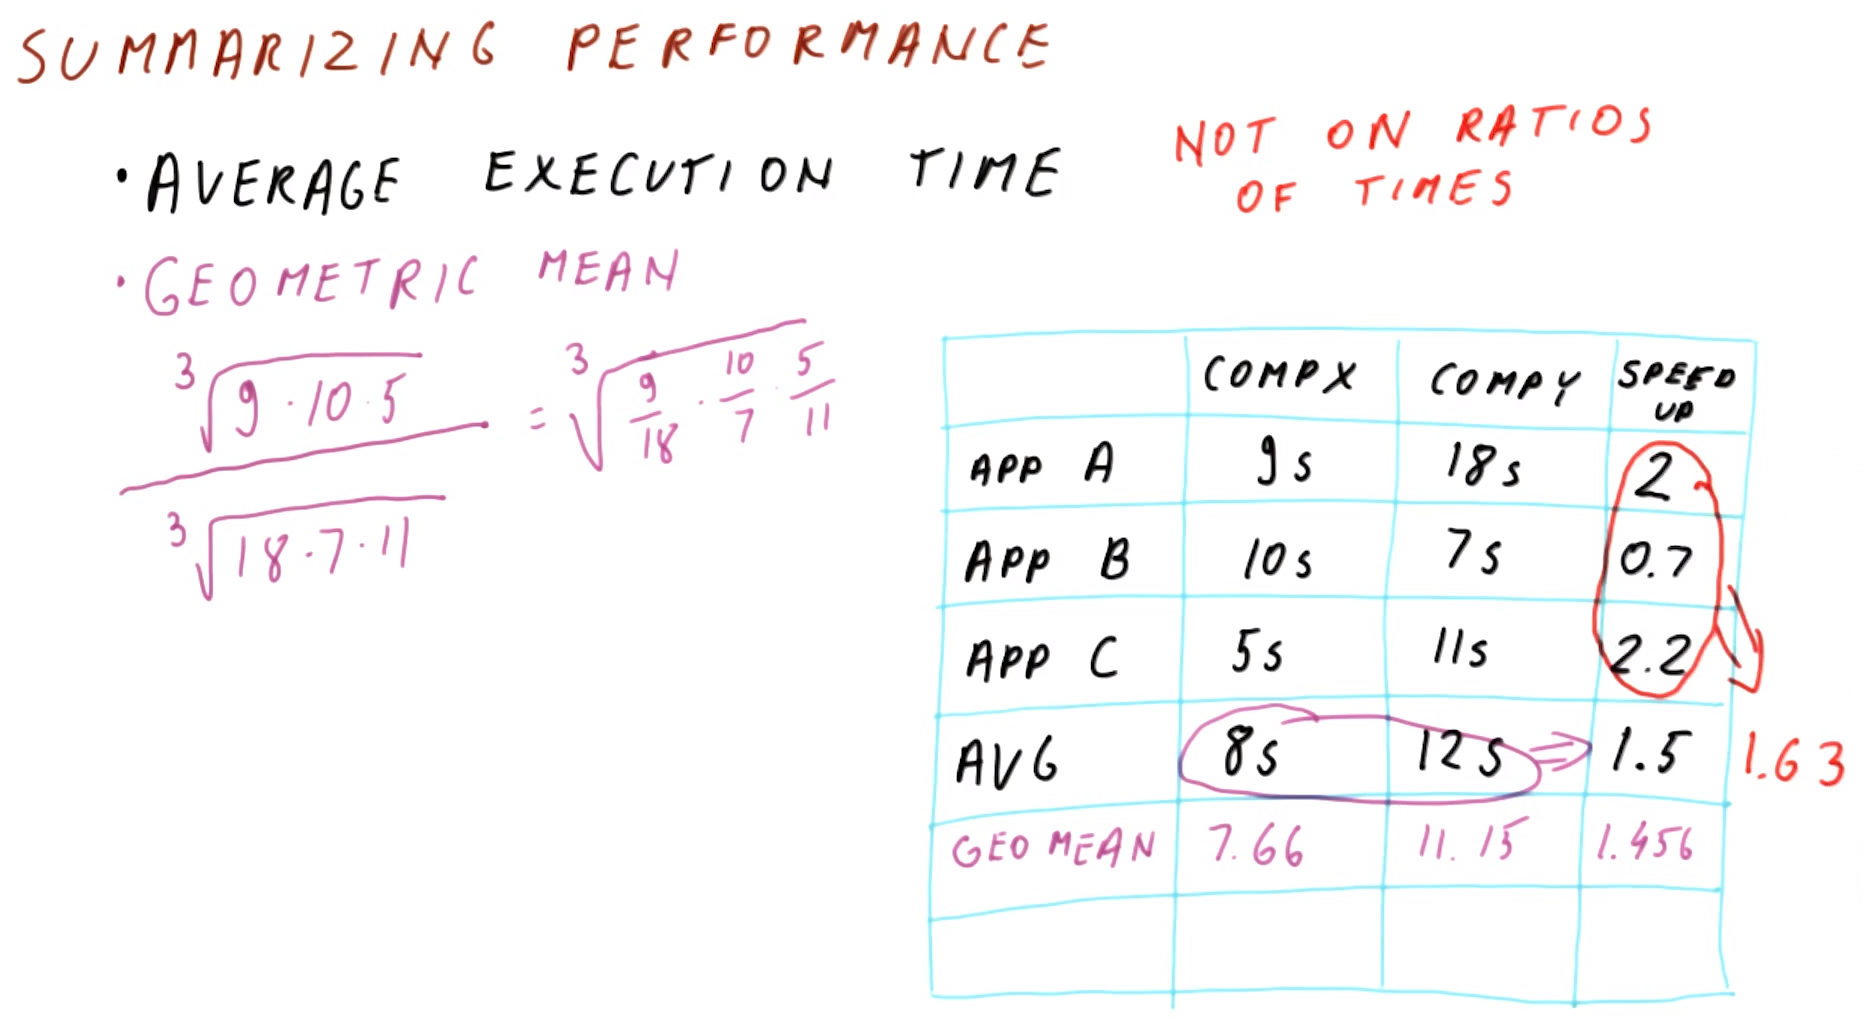 SUMMARIZING PERFORMANCE
• AVERAGE EXECUTION TIME
NOT ON RATIOS
OF TIMES
• GEOMETRIC MEAN
³√(9 · 10 · 5) / ³√(18 · 7 · 11) = ³√(9/18 · 10/7 · 5/11)
COMPX COMPY SPEED UP
APP A 9s 18s 2
APP B 10s 7s 0.7
APP C 5s 11s 2.2
AVG 8s 12s ⇒ 1.5 1.63
GEO MEAN 7.66 11.15 1.456